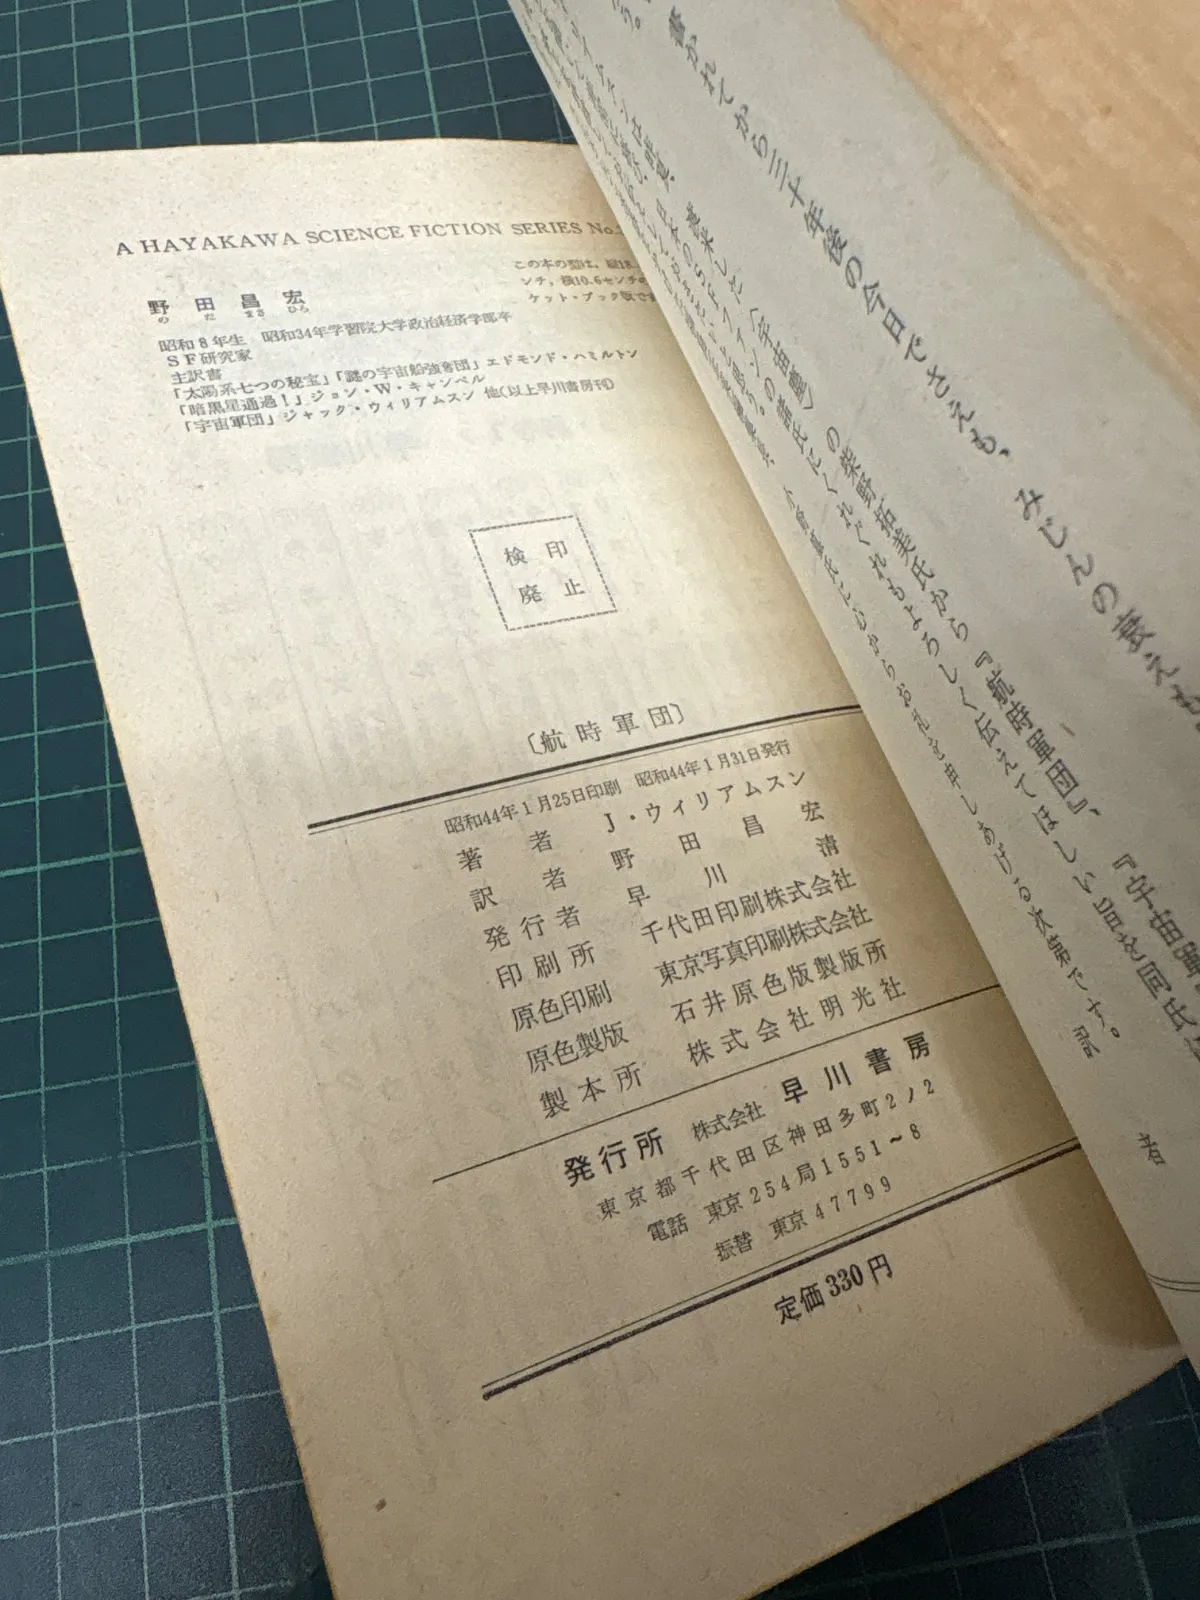 A HAYAKAWA SCIENCE FICTION SERIES No.
この本の型は、縦18.
ンチ，横10.6センチの
ケット・ブック版です
野田昌宏
のだまさひろ
昭和8年生 昭和34年学習院大学政治経済学部卒
SF研究家
主訳書
「太陽系七つの秘宝」「謎の宇宙船強奪団」エドモンド・ハミルトン
「暗黒星通過！」ジョン・W・キャンベル
「宇宙軍団」ジャック・ウィリアムスン 他(以上早川書房刊)
検印
廃止
〔航時軍団〕
昭和44年1月25日印刷 昭和44年1月31日発行
著者 J・ウィリアムスン
訳者 野田昌宏
発行者 早川清
印刷所 千代田印刷株式会社
原色印刷 東京写真印刷株式会社
原色製版 石井原色版製版所
製本所 株式会社明光社
発行所 株式会社 早川書房
東京都千代田区神田多町2ノ2
電話 東京254局1551～8
振替 東京47799
定価330円
書かれてから三十年後の今日でさえも、みじんの衰えも
『宇宙軍
来した〈宇宙塵〉の柴野拓美氏から『航時軍団』、
日本のSFファンの諸氏にくれぐれもよろしく伝えてほしい旨を同氏
氏に心からお礼を申しあげる次第です。
訳者